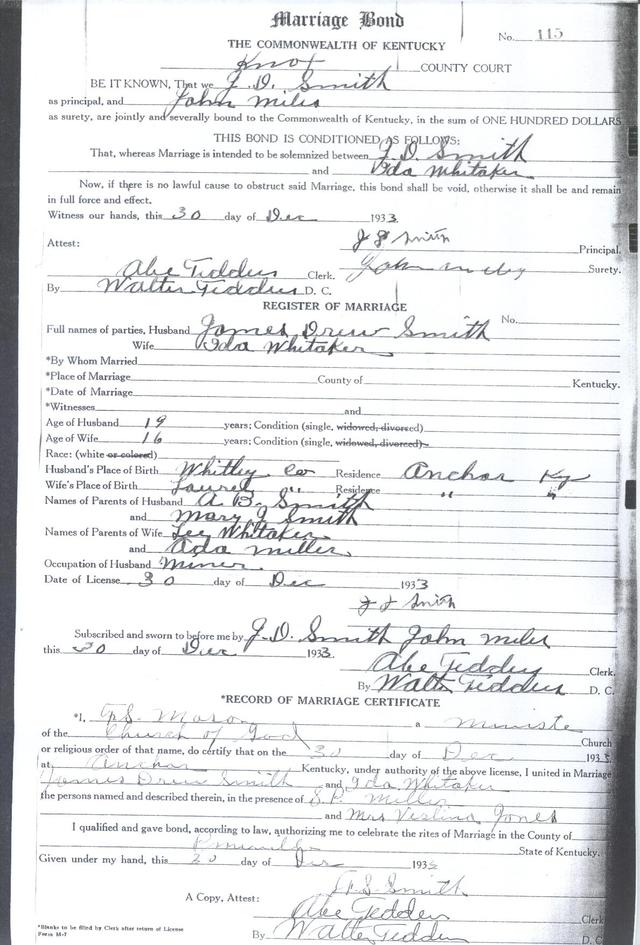 Marriage Bond
No. 115
THE COMMONWEALTH OF KENTUCKY
Knox COUNTY COURT
BE IT KNOWN, That we J. D. Smith
as principal, and John Miles
as surety, are jointly and severally bound to the Commonwealth of Kentucky, in the sum of ONE HUNDRED DOLLARS
THIS BOND IS CONDITIONED AS FOLLOWS:
That, whereas Marriage is intended to be solemnized between J. D. Smith
and Ida Whitaker
Now, if there is no lawful cause to obstruct said Marriage, this bond shall be void, otherwise it shall be and remain
in full force and effect.
Witness our hands, this 30 day of Dec 1933
J D Smith Principal.
Attest:
Abe Tedders Clerk. John Surety.
By Walter Tedders D. C.
REGISTER OF MARRIAGE
No.
Full names of parties, Husband James Drew Smith
Wife Ida Whitaker
*By Whom Married
*Place of Marriage County of Kentucky.
*Date of Marriage
*Witnesses and
Age of Husband 19 years; Condition (single, widowed, divorced)
Age of Wife 16 years; Condition (single, widowed, divorced)
Race: (white or colored)
Husband's Place of Birth Whitley Co Residence Anchor Ky
Wife's Place of Birth Laurel " Residence " "
Names of Parents of Husband A. B. Smith
and Mary J Smith
Names of Parents of Wife Lee Whitaker
and Ada Miller
Occupation of Husband Miner
Date of License 30 day of Dec 1933
Smith
Subscribed and sworn to before me by J. D. Smith John Miles
this 30 day of Dec 1933
Abe Tedders Clerk.
By Walter Tedders D. C.
*RECORD OF MARRIAGE CERTIFICATE
*I, Mason a Ministe
of the Church of God Church
or religious order of that name, do certify that on the 30 day of Dec 193
at Anchor Kentucky, under authority of the above license, I united in Marriage
James Drew Smith and Ida Whitaker
the persons named and described therein, in the presence of Miller
and Mrs Jones
I qualified and gave bond, according to law, authorizing me to celebrate the rites of Marriage in the County of
State of Kentucky.
Given under my hand, this 30 day of Dec 193
Smith
A Copy, Attest:
Abe Tedders Clerk
By Walter Tedders D. C.
*Blanks to be filled by Clerk after return of License
Form M-7